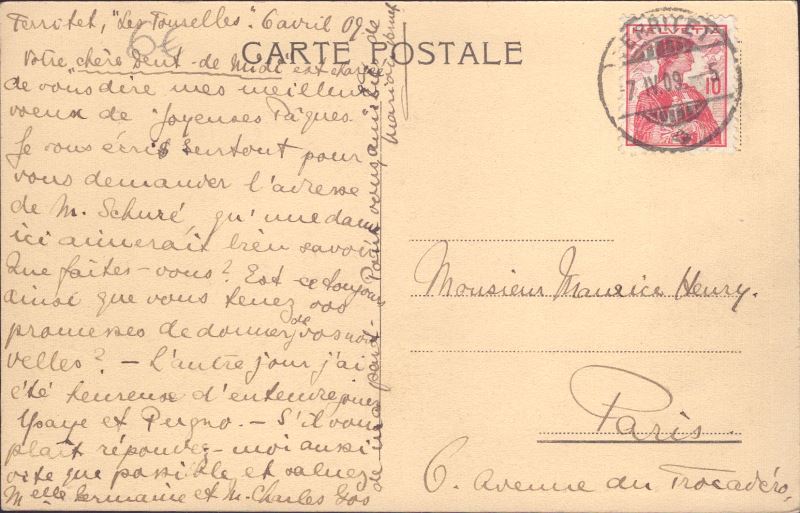 Territet, "Les Tourelles". 6 avril 09.
6€
CARTE POSTALE
Votre chère Dent-de Midi est chargée
de vous dire mes meilleurs
voeux de "Joyeuses Pâques"
Je vous écris surtout pour
vous demander l'adresse
de M. Schuré, qu'une dame
ici aimerait bien savoir
Que faites-vous? Est ce toujours
ainsi que vous tenez vos
promesses de donner de vos nou
velles? - L'autre jour j'ai
été heureuse d'entendre jouer
Ysaye et Pugno. - S'il vous
plaît répondez-moi aussi
vite que possible et saluez
Melle Germaine et M. Charles Gos
de ma part.
HELVETIA
TERRITET
7.IV.09.
10
Monsieur Maurice Henry.
Paris.
6. Avenue du Trocadéro,